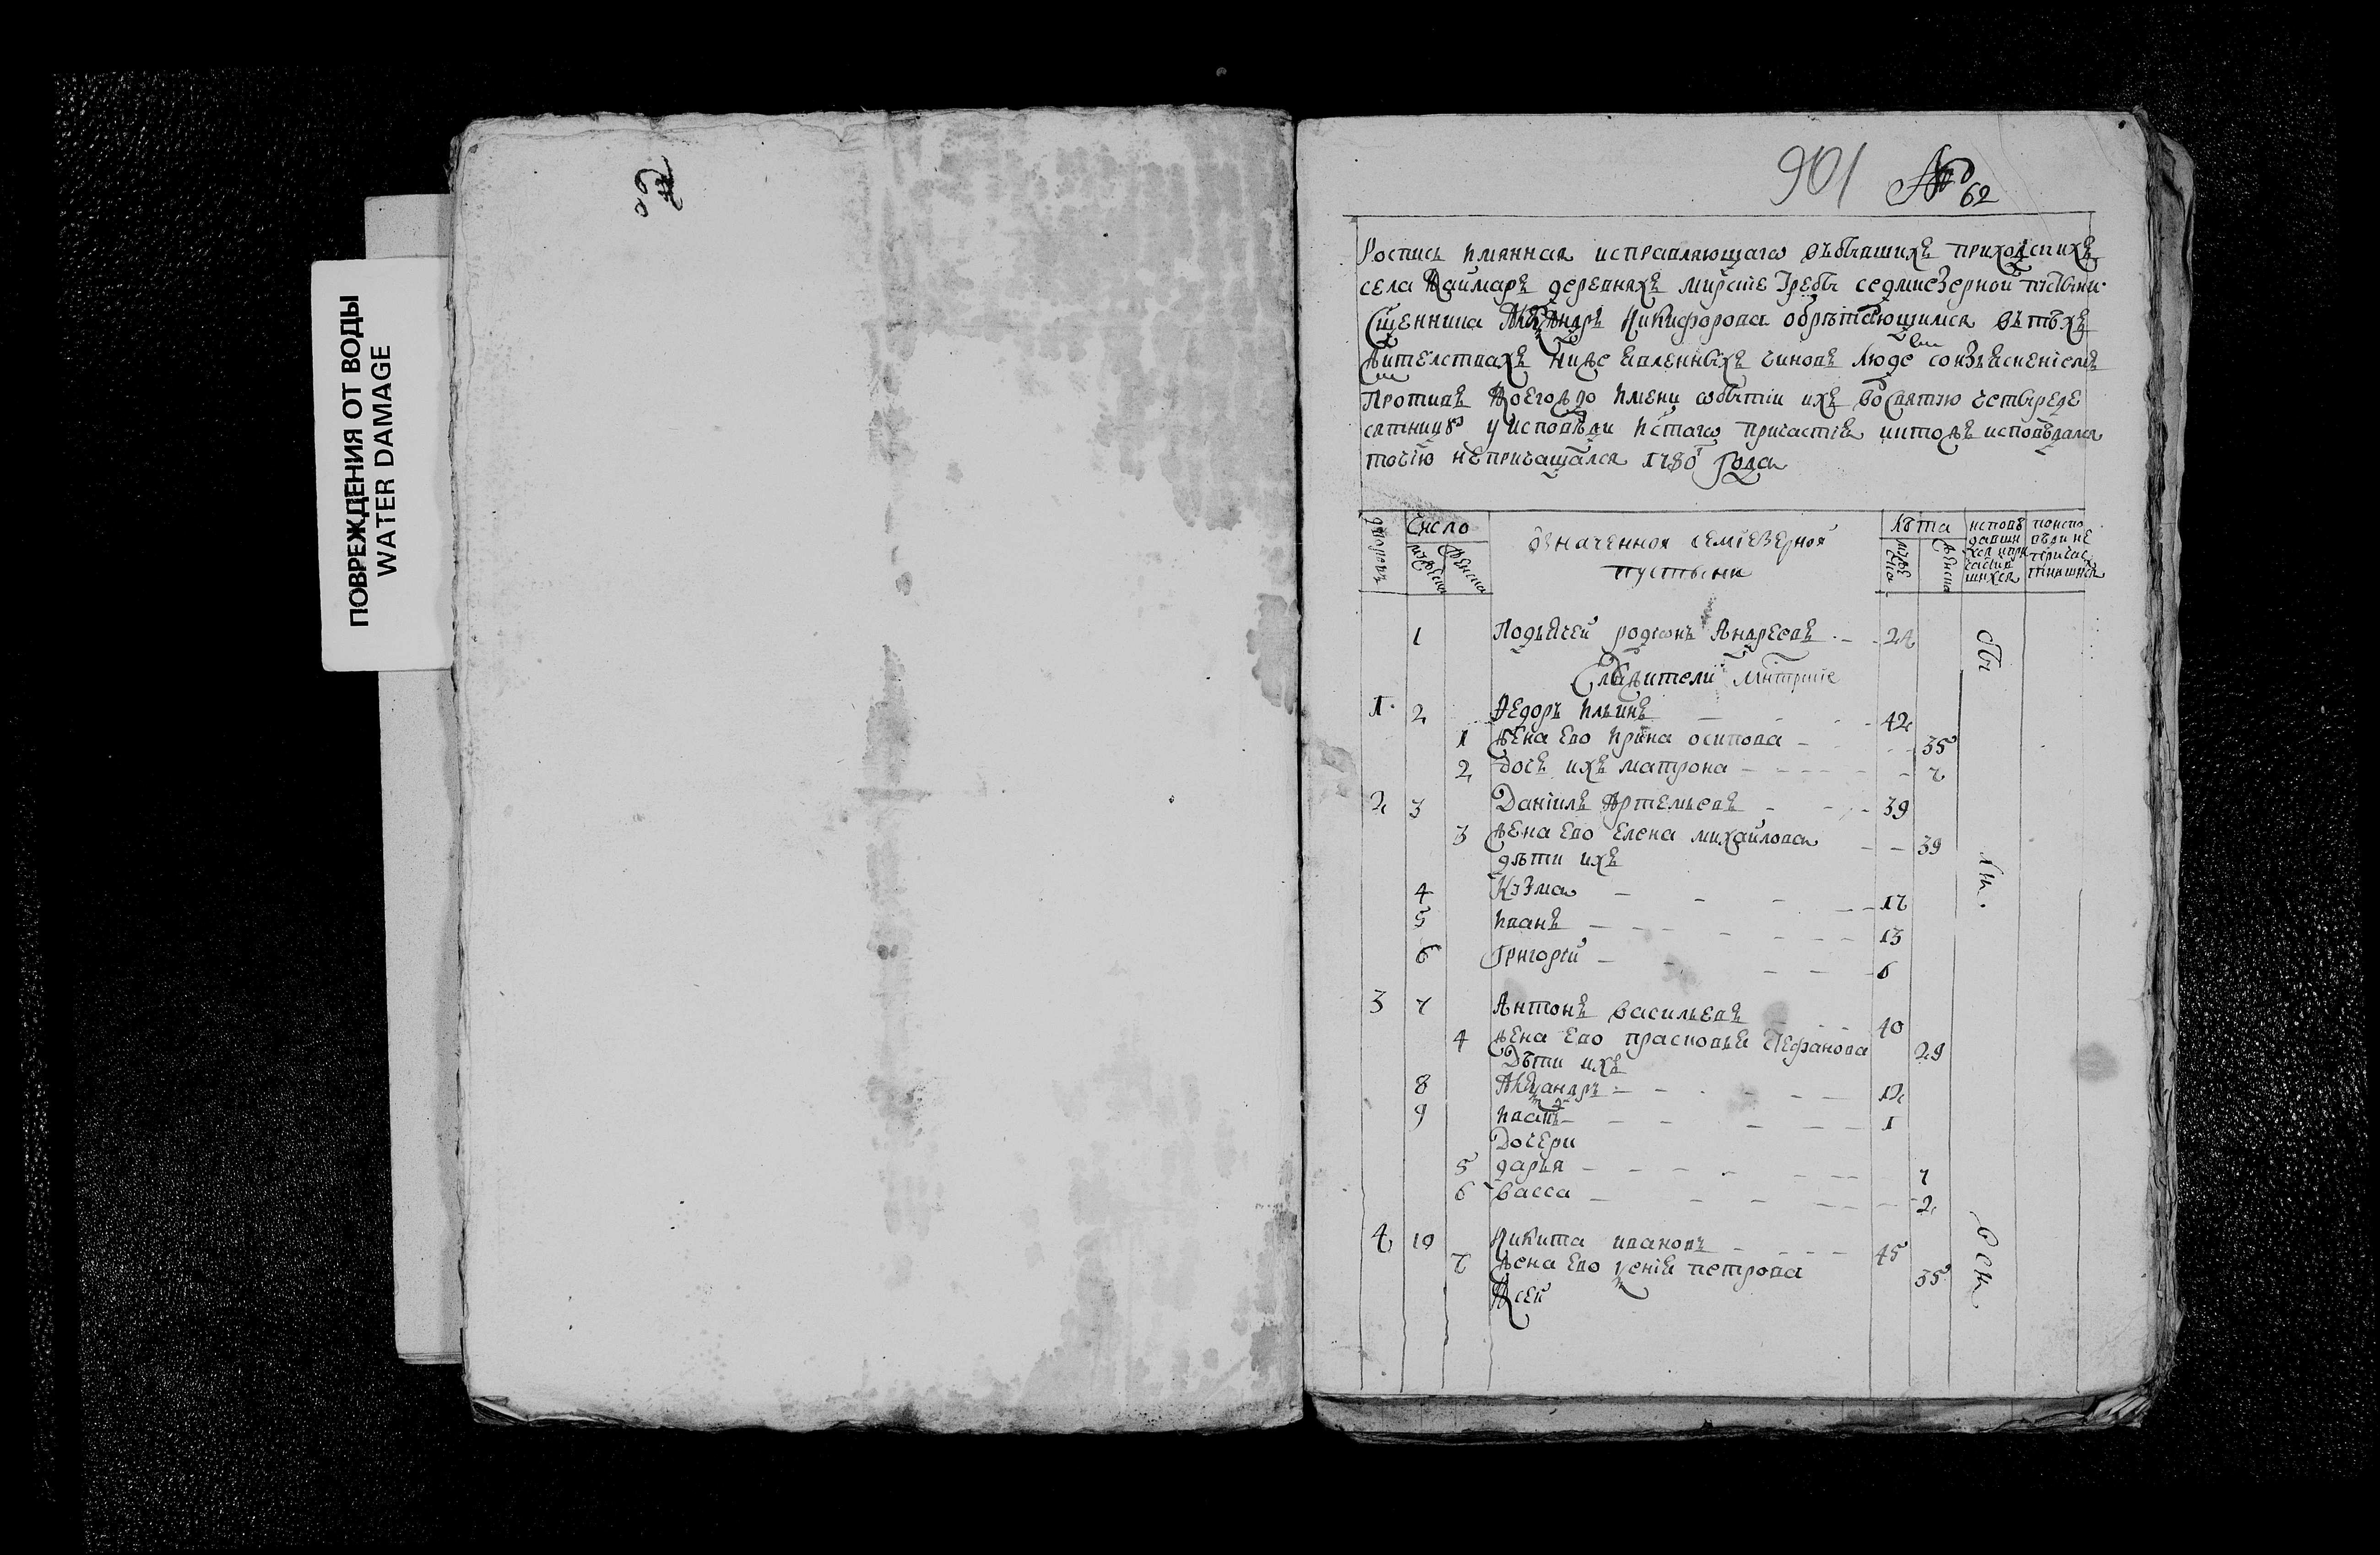 ПОВРЕЖДЕНИЯ ОТ ВОДЫ
WATER DAMAGE
901 № 62
Роспись имянная исправляющаго въбывшихъ приходскихъ
села Каймаръ деревняхъ мирские требы седмиезерной пустыни
сщенника Алеѯандръ Никифорова обрѣтающимся вътѣхъ
жителствахъ ниже явленныхъ чиновъ люде соизъяснениемъ
противъ коегождо имени 
 у исповѣди истаго причастия иктожъ исповѣдался
точию непричащался 1780 года
дворовъ
Число
мужеска
женска
означенной семиезерной
пустыни
лѣта
мужеска
женска
исповѣ
давши
шихся
поиспо
вѣди не
причас
тившися
1 Подьячей родионъ Андреевъ 24
Служители
1 2 Федоръ Ильинъ 42
1 жена ево Ирина осипова 35
2 дочь ихъ матрона 7
2 3 Данiилъ Артемьевъ 39
3 жена ево Елена михайлова 39
дѣти ихъ
4 Кузма 17
5 Иванъ 13
6 Григорей 6
3 7 Антонъ васильевъ 40
4 жена ево прасковья Стефанова 29
Дѣти ихъ
8 Алеѯандръ 12
9 1
Дочери
5 дарья 7
6 васса 2
4 10 Никита ивановъ 45
7 жена ево ѯения петрова 35
бы
ли
вси